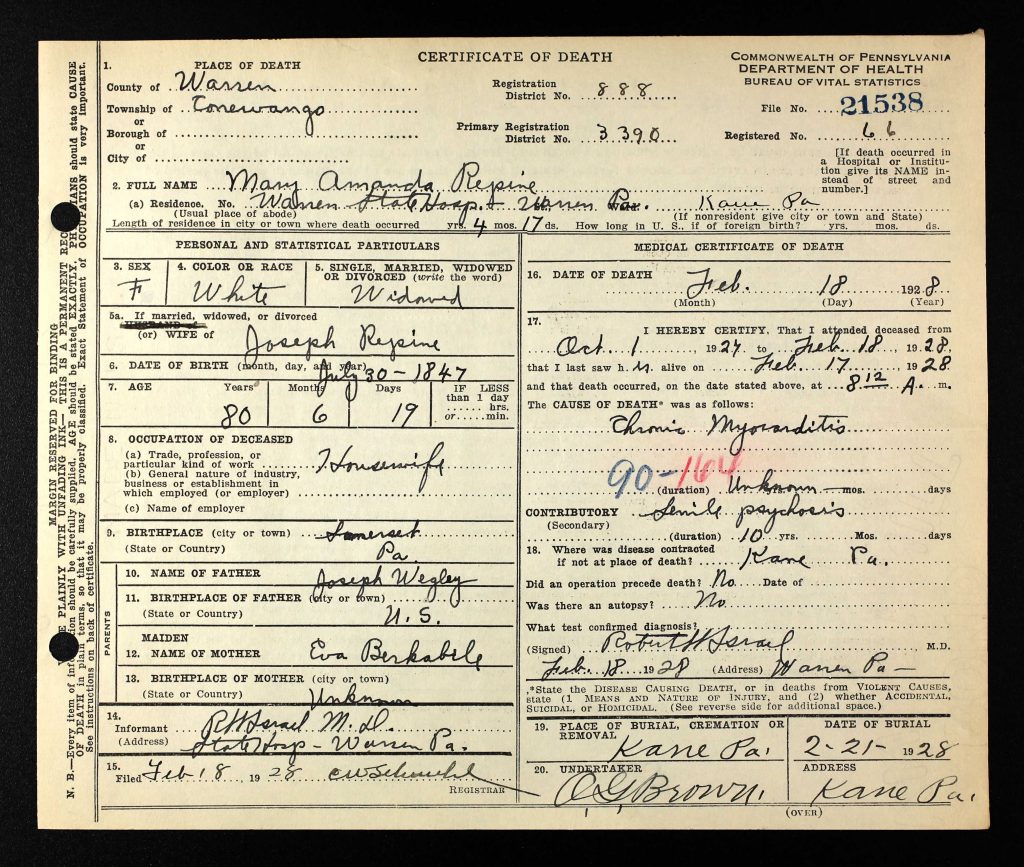 CERTIFICATE OF DEATH
COMMONWEALTH OF PENNSYLVANIA
DEPARTMENT OF HEALTH
BUREAU OF VITAL STATISTICS
1. PLACE OF DEATH
County of Warren
Township of Conewango
or
Borough of
or
City of
Registration
District No. 888
Primary Registration
District No. 3390
File No. 21538
Registered No. 66
[If death occurred in
a Hospital or Institu-
tion give its NAME in-
stead of street and
number.]
2. FULL NAME Mary Amanda Repine
(a) Residence. No. Warren State Hosp. Warren Pa. Kane Pa
(Usual place of abode) (If nonresident give city or town and State)
Length of residence in city or town where death occurred yrs. 4 mos. 17 ds. How long in U. S., if of foreign birth? yrs. mos. ds.
PERSONAL AND STATISTICAL PARTICULARS
3. SEX
F
4. COLOR OR RACE
White
5. SINGLE, MARRIED, WIDOWED
OR DIVORCED (write the word)
Widowed
5a. If married, widowed, or divorced
HUSBAND of
(or) WIFE of Joseph Repine
6. DATE OF BIRTH (month, day, and year) July 30 - 1847
7. AGE Years Months Days IF LESS
than 1 day
hrs.
or min.
80 6 19
8. OCCUPATION OF DECEASED
(a) Trade, profession, or
particular kind of work Housewife
(b) General nature of industry,
business or establishment in
which employed (or employer)
(c) Name of employer
9. BIRTHPLACE (city or town) Somerset
(State or Country) Pa
PARENTS
10. NAME OF FATHER Joseph Wegley
11. BIRTHPLACE OF FATHER (city or town)
(State or Country) U. S.
MAIDEN
12. NAME OF MOTHER Eva Berkabile
13. BIRTHPLACE OF MOTHER (city or town)
(State or Country) Unknown
14.
Informant R W Israel M. D.
(Address) State Hosp - Warren Pa.
15.
Filed Feb 18 1928
REGISTRAR
MEDICAL CERTIFICATE OF DEATH
16. DATE OF DEATH Feb. 18 1928
(Month) (Day) (Year)
17.
I HEREBY CERTIFY, That I attended deceased from
Oct 1 1927 to Feb 18 1928
that I last saw h alive on Feb 17 1928
and that death occurred, on the date stated above, at 8 12 A. m.
The CAUSE OF DEATH* was as follows:
Chronic Myocarditis
90-164
(duration) Unknown mos. days
CONTRIBUTORY Senile psychosis
(Secondary)
(duration) 10 yrs. Mos. days
18. Where was disease contracted
if not at place of death? Kane Pa.
Did an operation precede death? No Date of
Was there an autopsy? No
What test confirmed diagnosis?
(Signed) Robert W Israel M.D.
Feb. 18 1928 (Address) Warren Pa -
*State the DISEASE CAUSING DEATH, or in deaths from VIOLENT CAUSES,
state (1 MEANS AND NATURE OF INJURY, and (2) whether ACCIDENTAL,
SUICIDAL, or HOMICIDAL. (See reverse side for additional space.)
19. PLACE OF BURIAL, CREMATION OR
REMOVAL
Kane Pa.
DATE OF BURIAL
2-21- 1928
20. UNDERTAKER
O. G. Brown.
ADDRESS
Kane Pa.
(OVER)
MARGIN RESERVED FOR BINDING
PLAINLY WITH UNFADING INK— THIS IS A PERMANENT
N. B.—Every item of should be carefully supplied. AGE should be stated EXACTLY. should state CAUSE
OF DEATH in plain terms, so that it may be properly classified. Exact Statement of OCCUPATION is very important.
See instructions on back of certificate.